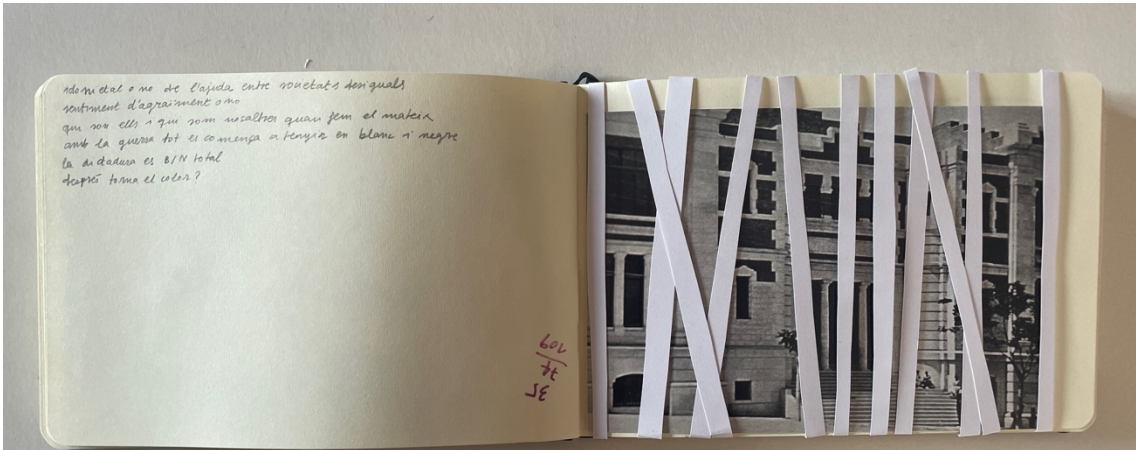 idoneïtat o no de l'ajuda entre societats desiguals
sentiment d'agraïment o no
qui son ells i qui som nosaltres quan fem el mateix
amb la guerra tot es comença a tenyir en blanc i negre
la dictadura es B/N total
després torna el color?
35
74
109